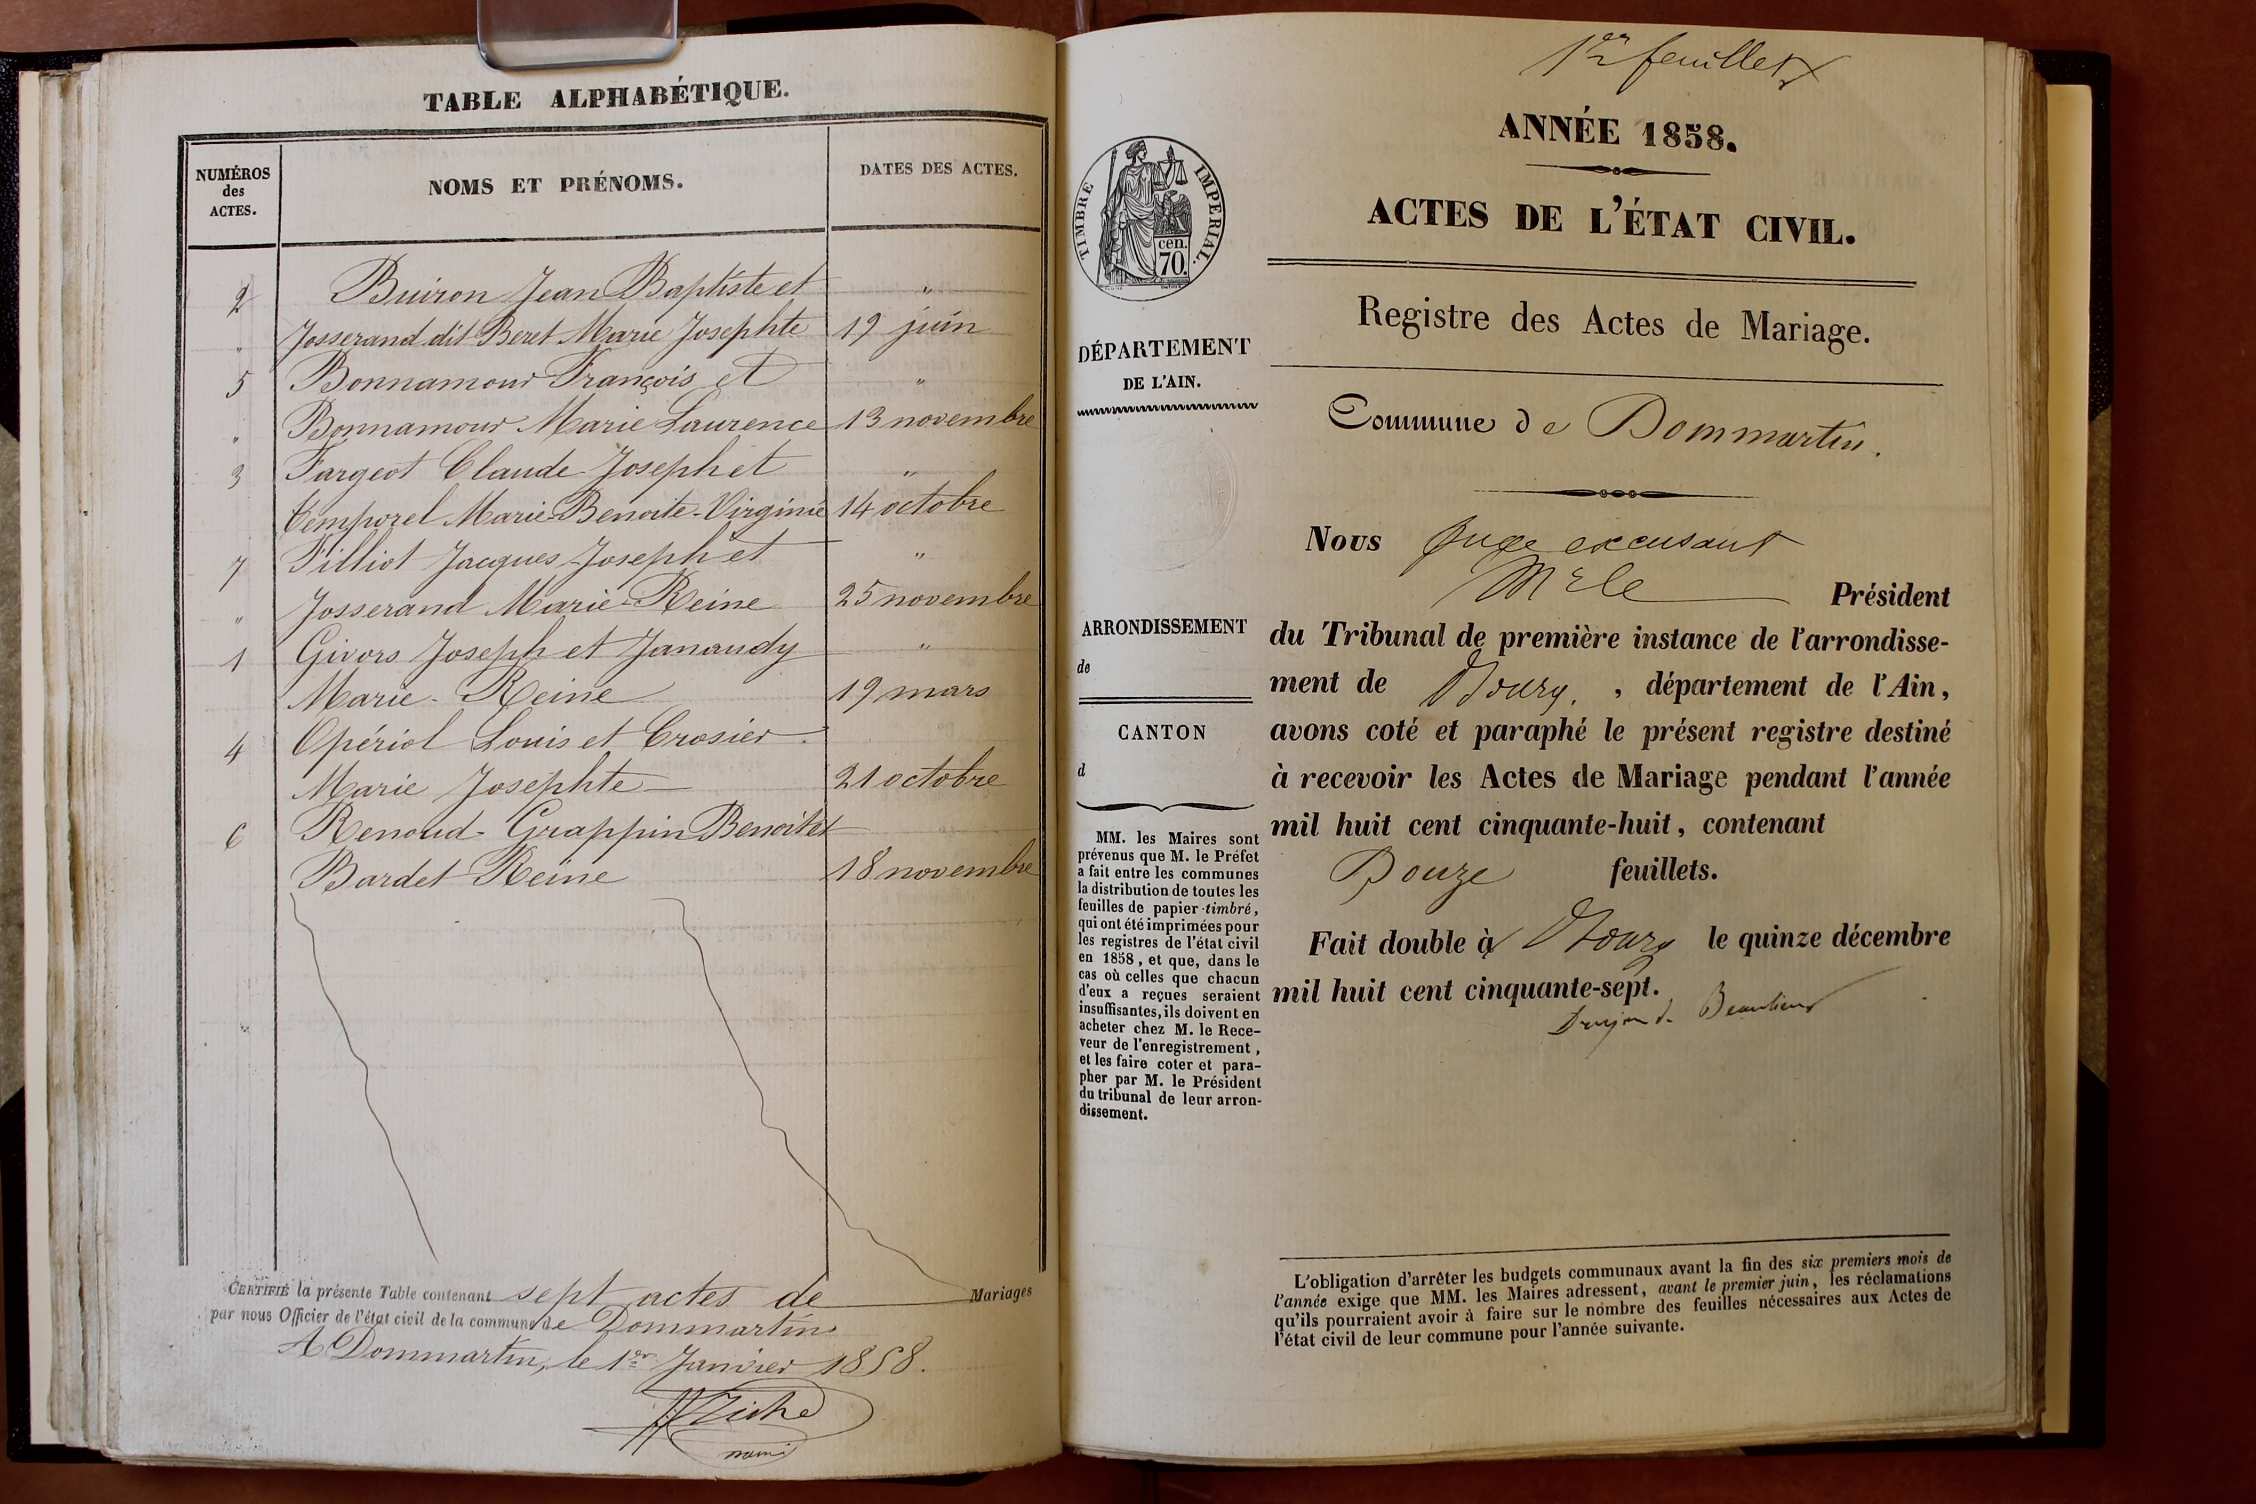 TABLE ALPHABÉTIQUE.
NUMÉROS des ACTES. NOMS ET PRÉNOMS. DATES DES ACTES.
2 Buiron Jean Baptiste et "
" Josserand dit Beret Marie Josephte 19 juin
5 Bonnamour François et "
" Bonnamour Marie Laurence 13 novembre
3 Fargeot Claude Joseph et "
Temporel Marie-Benoite-Virginie 14 octobre
7 Filliot Jacques-Joseph et "
" Josserand Marie-Reine 25 novembre
1 Givors Joseph et Janaudy "
Marie-Reine 19 mars
4 Opériol Louis et Crosier
Marie Josephte 21 octobre
6 Renoud-Grappin Benoit et
Bardet Reine 18 novembre
CERTIFIÉ la présente Table contenant sept actes de Mariages
par nous Officier de l'état civil de la commune de Dommartin
A Dommartin, le 1er Janvier 1858.
1er feuillet
ANNÉE 1858.
ACTES DE L'ÉTAT CIVIL.
Registre des Actes de Mariage.
Commune de Dommartin.
TIMBRE IMPERIAL.
cen.
70.
DÉPARTEMENT
DE L'AIN.
ARRONDISSEMENT
de
CANTON
d
MM. les Maires sont
prévenus que M. le Préfet
a fait entre les communes
la distribution de toutes les
feuilles de papier timbré,
qui ont été imprimées pour
les registres de l'état civil
en 1858, et que, dans le
cas où celles que chacun
d'eux a reçues seraient
insuffisantes, ils doivent en
acheter chez M. le Rece-
veur de l'enregistrement,
et les faire coter et para-
pher par M. le Président
du tribunal de leur arron-
dissement.
Nous Juge excusant
Mr le Président
du Tribunal de première instance de l'arrondisse-
ment de Bourg, département de l'Ain,
avons coté et paraphé le présent registre destiné
à recevoir les Actes de Mariage pendant l'année
mil huit cent cinquante-huit, contenant
Douze feuillets.
Fait double à Bourg le quinze décembre
mil huit cent cinquante-sept.
Beaulieu
L'obligation d'arrêter les budgets communaux avant la fin des six premiers mois de
l'année exige que MM. les Maires adressent, avant le premier juin, les réclamations
qu'ils pourraient avoir à faire sur le nombre des feuilles nécessaires aux Actes de
l'état civil de leur commune pour l'année suivante.